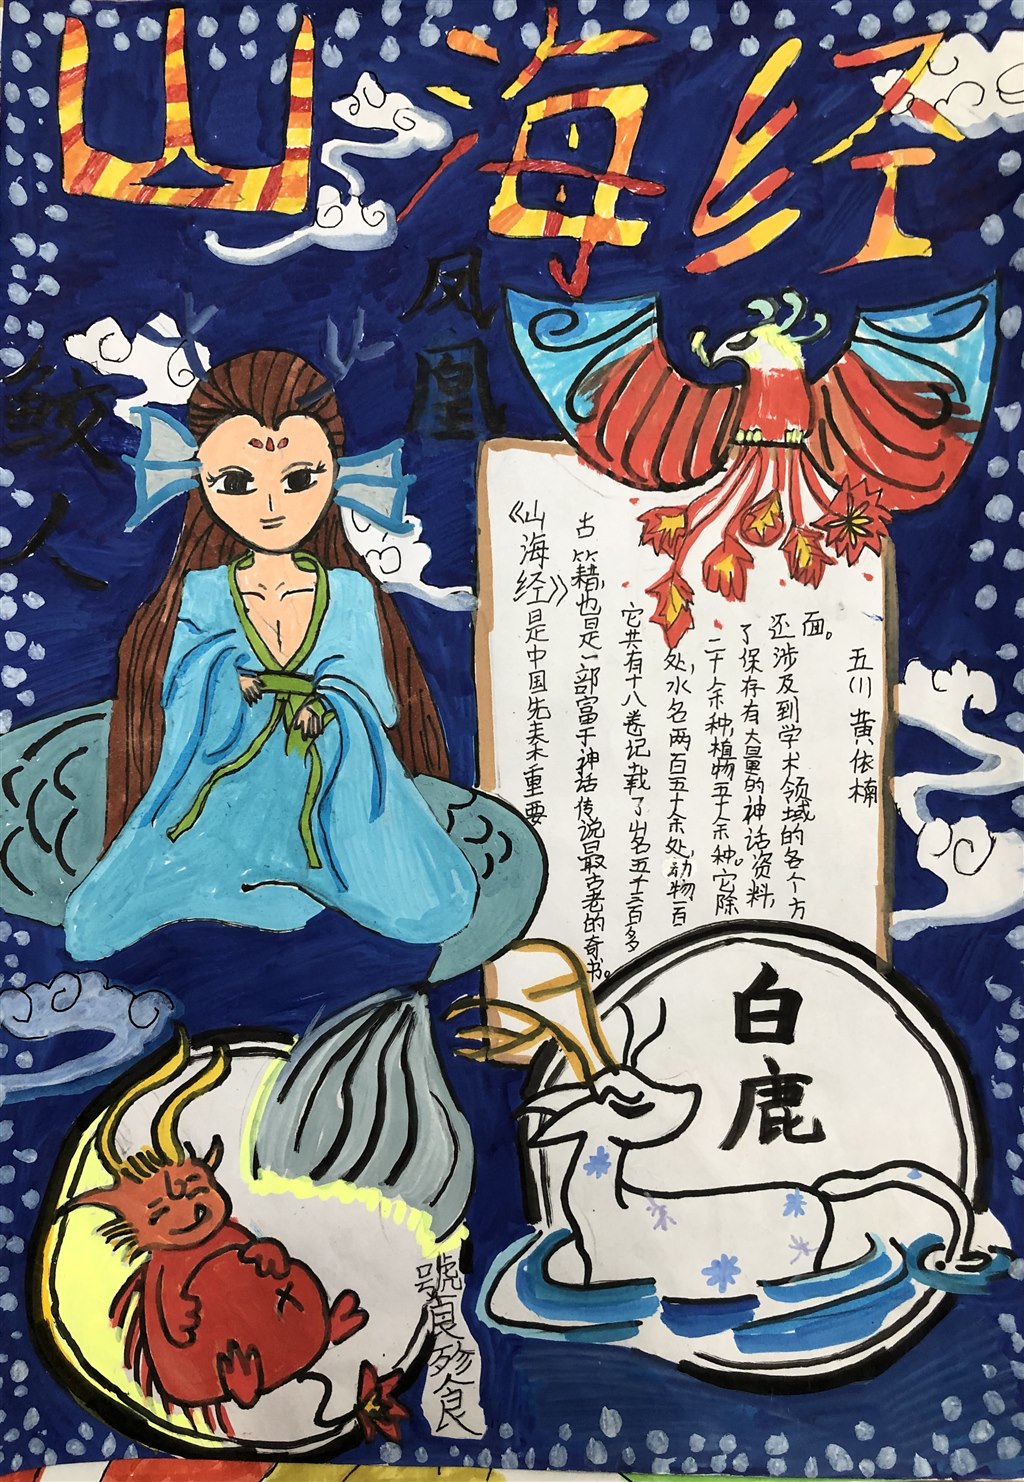 山海经
凤凰
鲛人
《山海经》是中国先秦重要
古籍,也是一部富于神话传说最古老的奇书。
它共有十八卷记载了山名五十三百多
处,水名两百五十余处,动物一百
二十余种,植物五十余种。它除
了保存有大量的神话资料,
还涉及到学术领域的各个方
面。
五川 黄依楠
白鹿